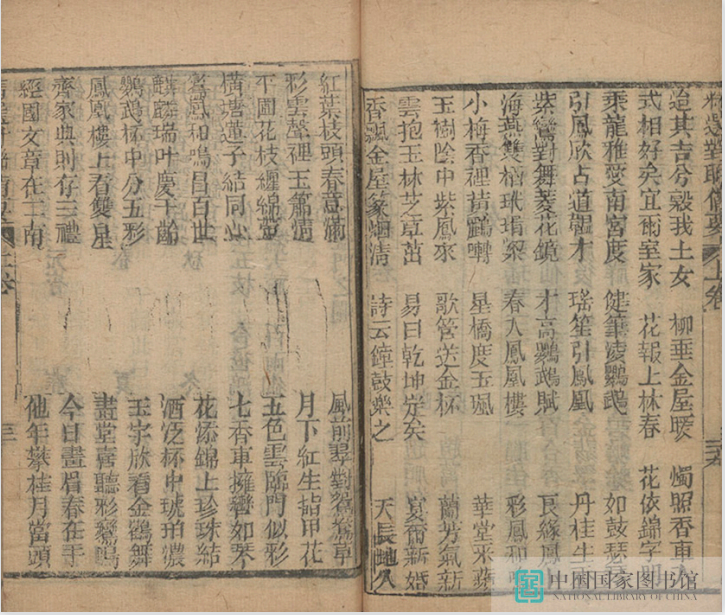 迨其吉兮穀我士女
柳垂金屋暖
燭照香車
式相好矣宜爾室家
花報上林春
花依錦字開
乘龍雅奕南宮度
健筆淩鸚鵡
如鼓瑟
引鳳欣占道韞才
瑤笙引鳳凰
丹桂生
紫鸞對舞菱花鏡
才高鸚鵡賦
良緣鳳
海燕雙棲玳瑁梁
春入鳳凰樓
彩鳳和
小梅香裡黃鸝囀
星橋度玉珮
華堂來燕
玉樹陰中紫鳳來
歌管送金杯
蘭芳氣新
雲抱玉林芝草茁
易曰乾坤定矣
宴爾新婚
香飄金屋篆烟清
詩云鐘鼓樂之
天長地久
紅葉枝頭春意滿
風前對鴛鴦草
彩雲聲裡玉簫清
月下紅生指甲花
平圃花枝纏錦
五色雲臨門似彩
橫塘蓮子結同心
七香車擁轡如琴
鸞鳳和鳴昌百世
花添錦上珍珠結
麒麟瑞叶慶千齡
酒泛杯中琥珀濃
鸚鵡杯中分五彩
玉宇欣看金鶴舞
鳳凰樓上看雙星
畫堂喜聽彩鸞鳴
齊家典則存三禮
今日畫眉春在手
經國文章在二南
他年攀桂月當頭
上卷
三
中国国家图书馆
NATIONAL LIBRARY OF CHINA